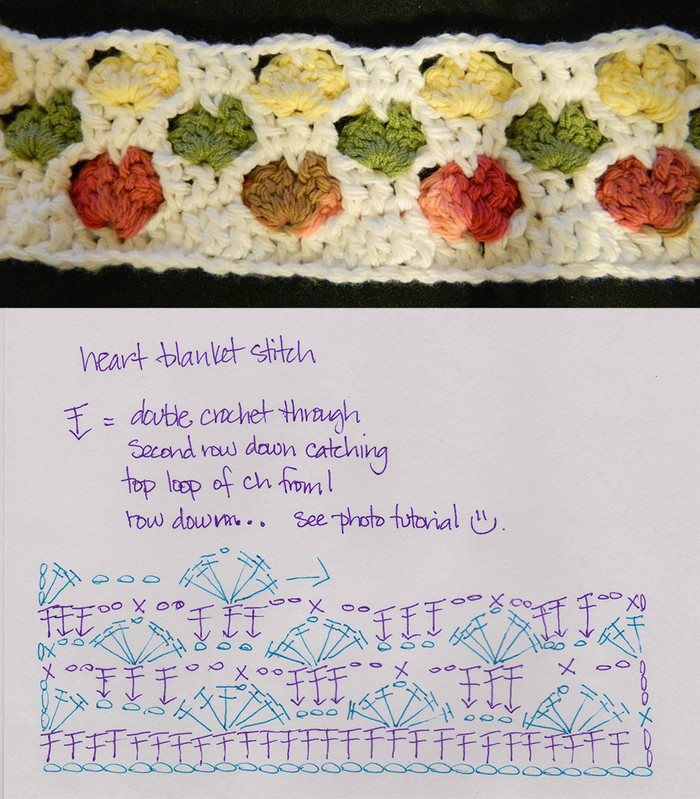 heart blanket stitch
= double crochet through
second row down catching
top loop of ch from 1
row down... see photo tutorial